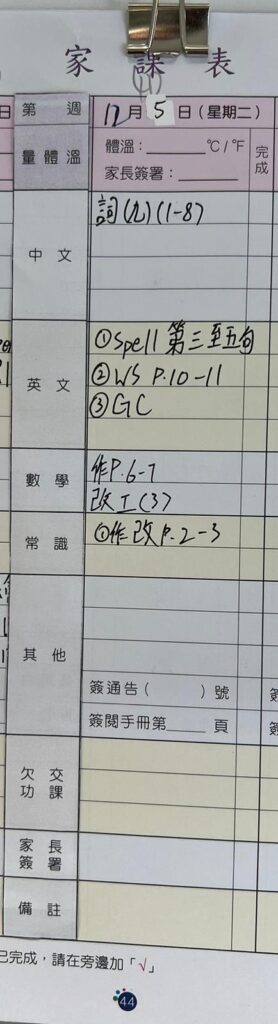 家課表
(11)
日 第 週 12月5日(星期二)
量體溫 體溫：______℃/℉ 完成
家長簽署：______
中文 詞(九)(1-8)
英文 ①Spell 第三至五句
②WS P.10-11
③GC
數學 作P.6-7
改工(3)
常識 ①作改P.2-3
其他
簽通告( )號 簽
簽閱手冊第____頁 簽
欠交功課
家長簽署
備註
已完成，請在旁邊加「√」
44